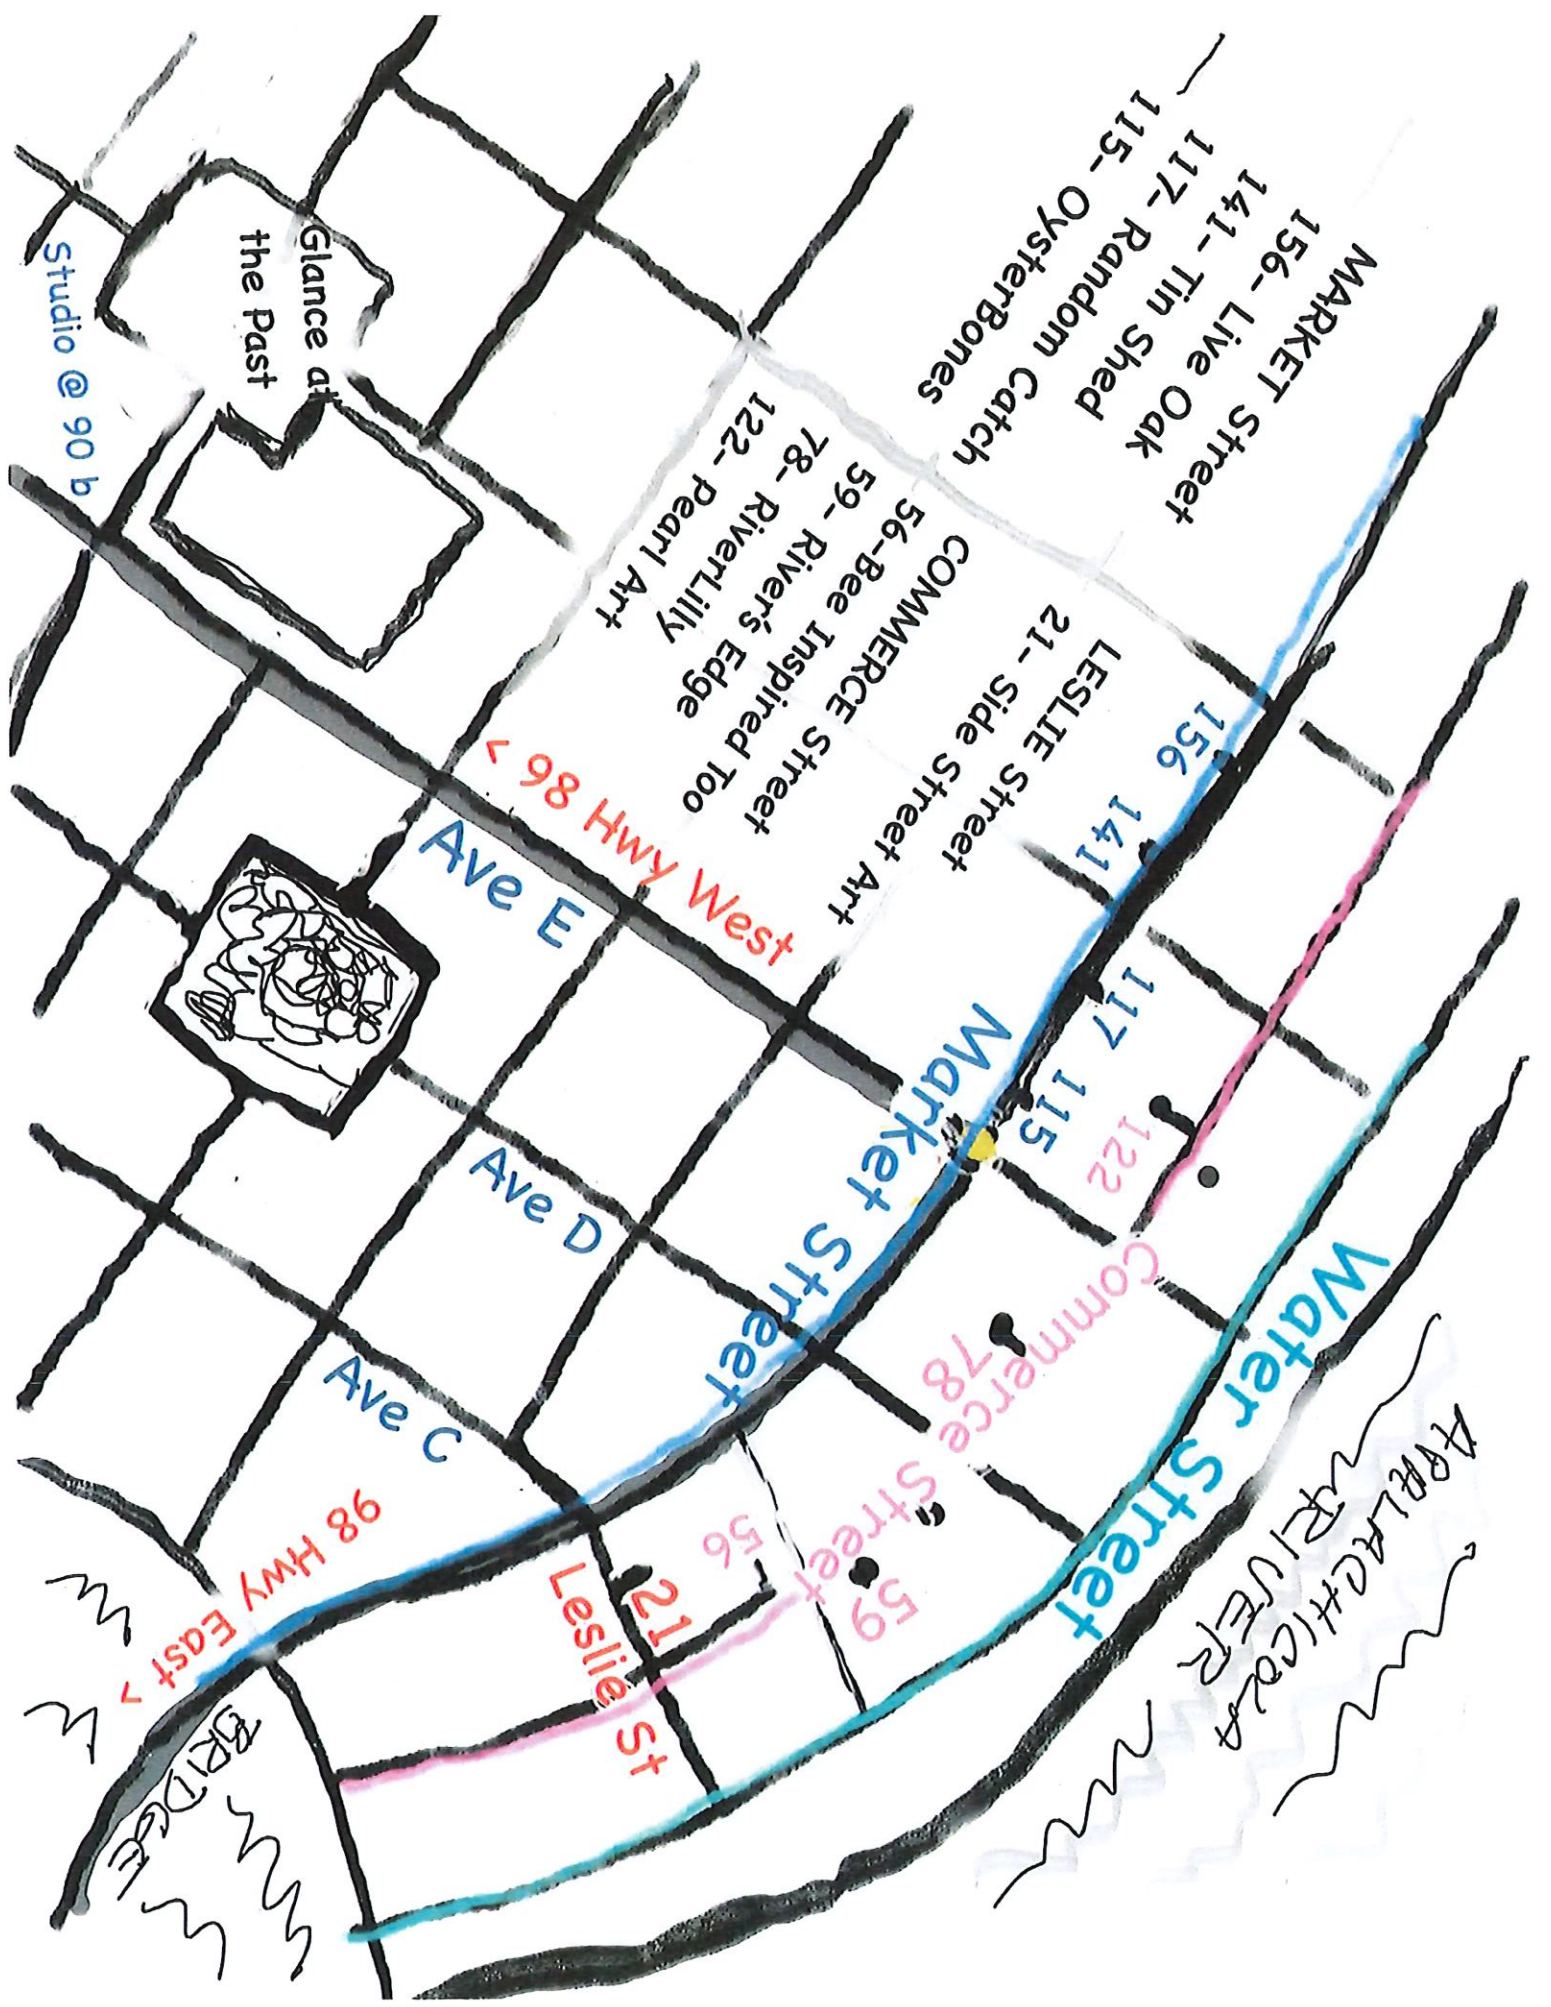 MARKET Street
156- Live Oak
141- Tin Shed
117- Random Catch
115- OysterBones
LESLIE Street
21- Side Street Art
COMMERCE Street
56-Bee Inspired Too
59- River's Edge
78- RiverLilly
122- Pearl Art
Glance at
the Past
Studio @ 90 b
< 98 Hwy West
Ave E
Ave D
Ave C
Market Street
156
141
117
115
122
Commerce Street
78
59
56
21
Leslie St
Water Street
98 Hwy East >
BRIDGE
APALACHICOLA
RIVER